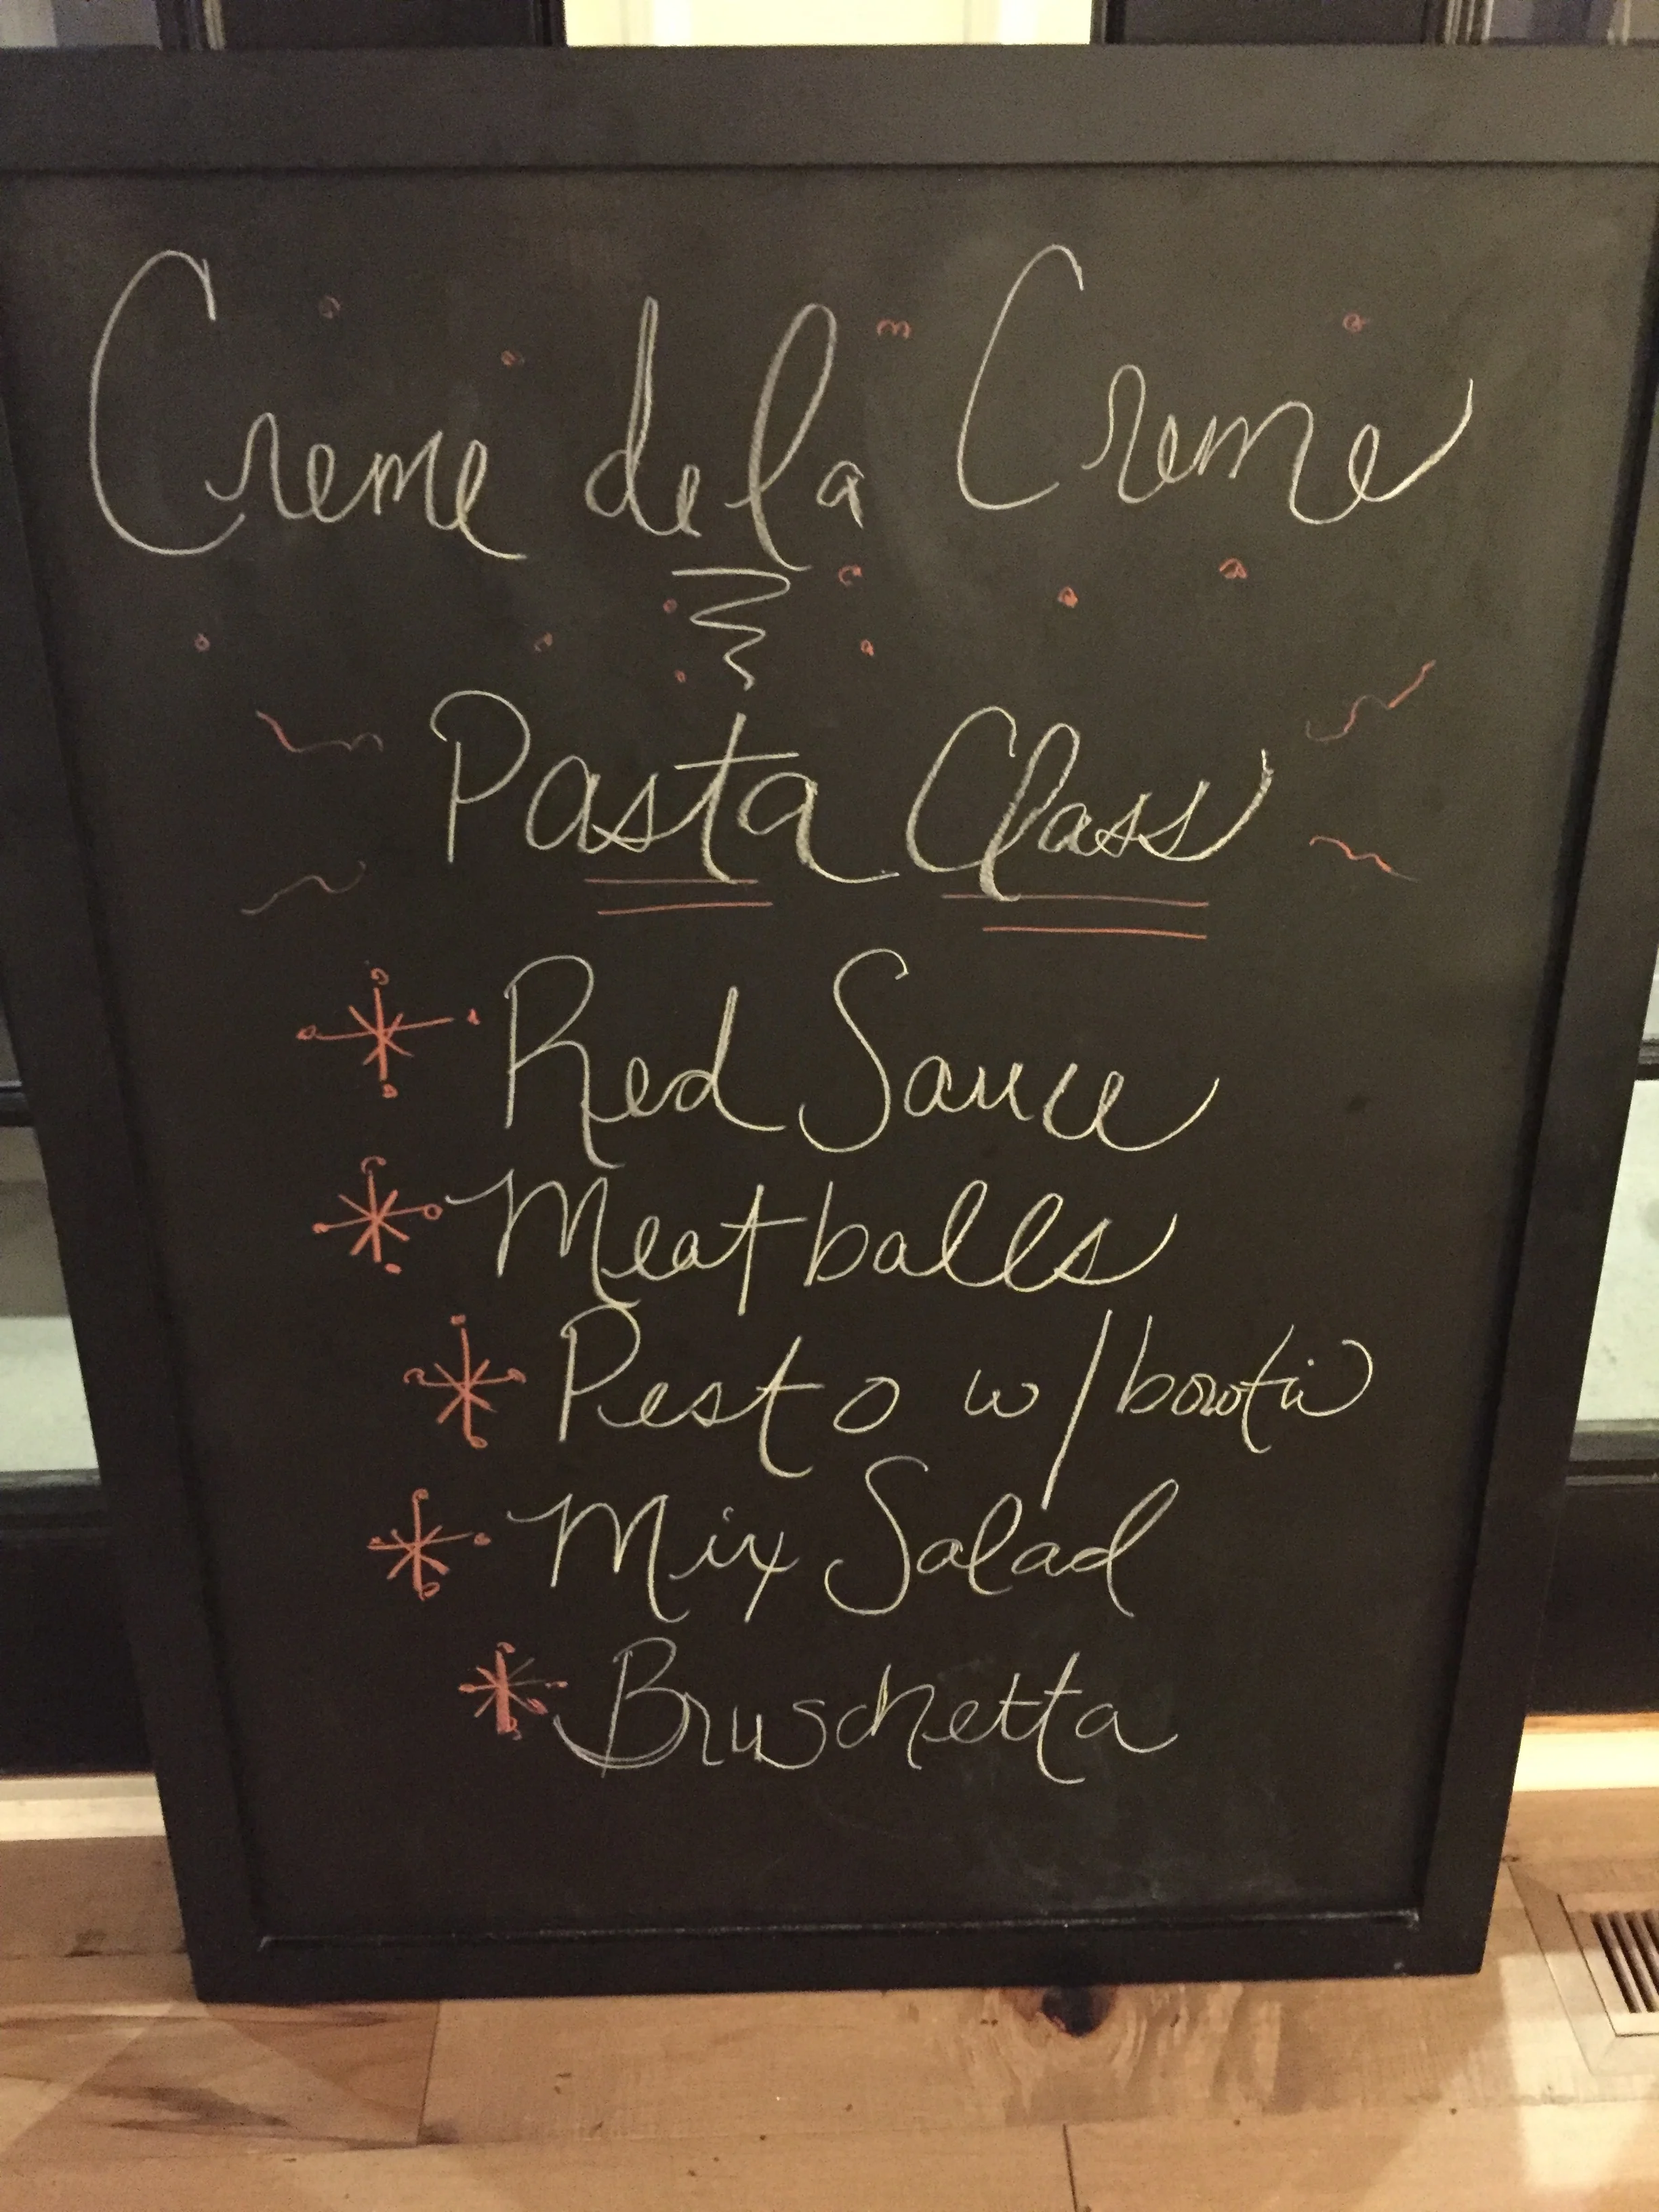 Creme de la Creme
Pasta Class
Red Sauce
Meatballs
Pesto w/bowtie
Mix Salad
Bruschetta